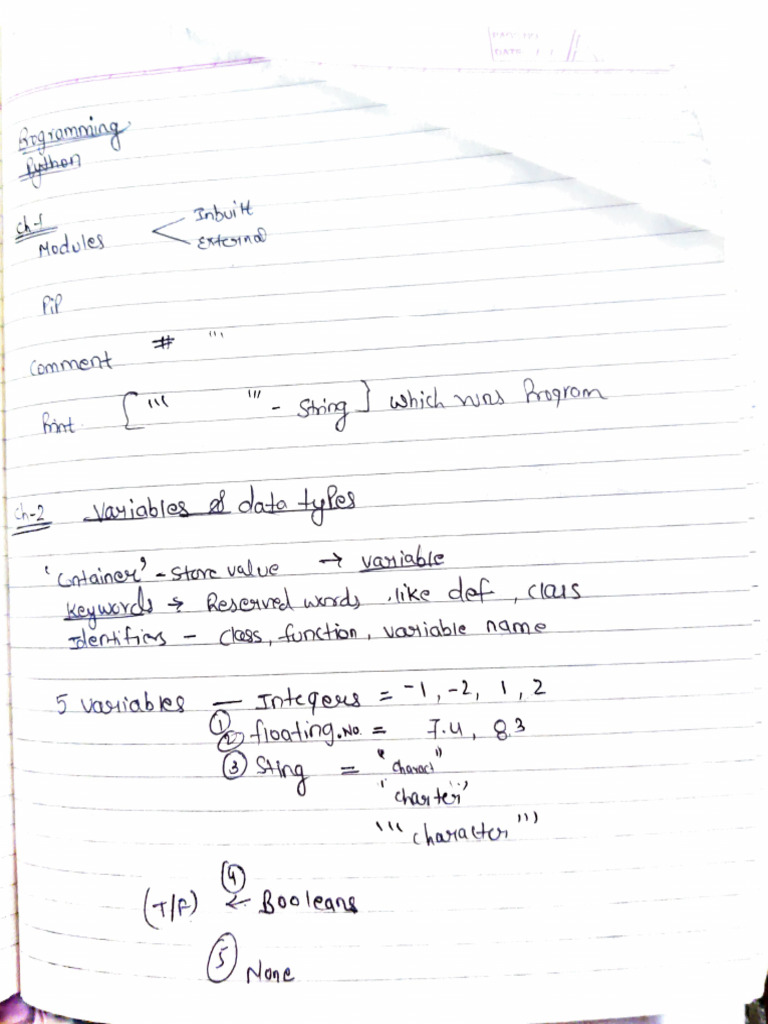 Programming
Python
Ch-1
Modules < Inbuilt
External
PiP
Comment # '''
Print [''' ''' - String] which runs Program
Ch-2 Variables & data types
'Container' - store value → variable
Keywords → Reserved words like def, class
Identifiers - class, function, variable name
5 variables — Integers = -1, -2, 1, 2
① ② floating No. = 7.4, 8.3
③ Sting = "charact"
"charter"
'''character'''
④
(T/F) ← Booleans
⑤ None